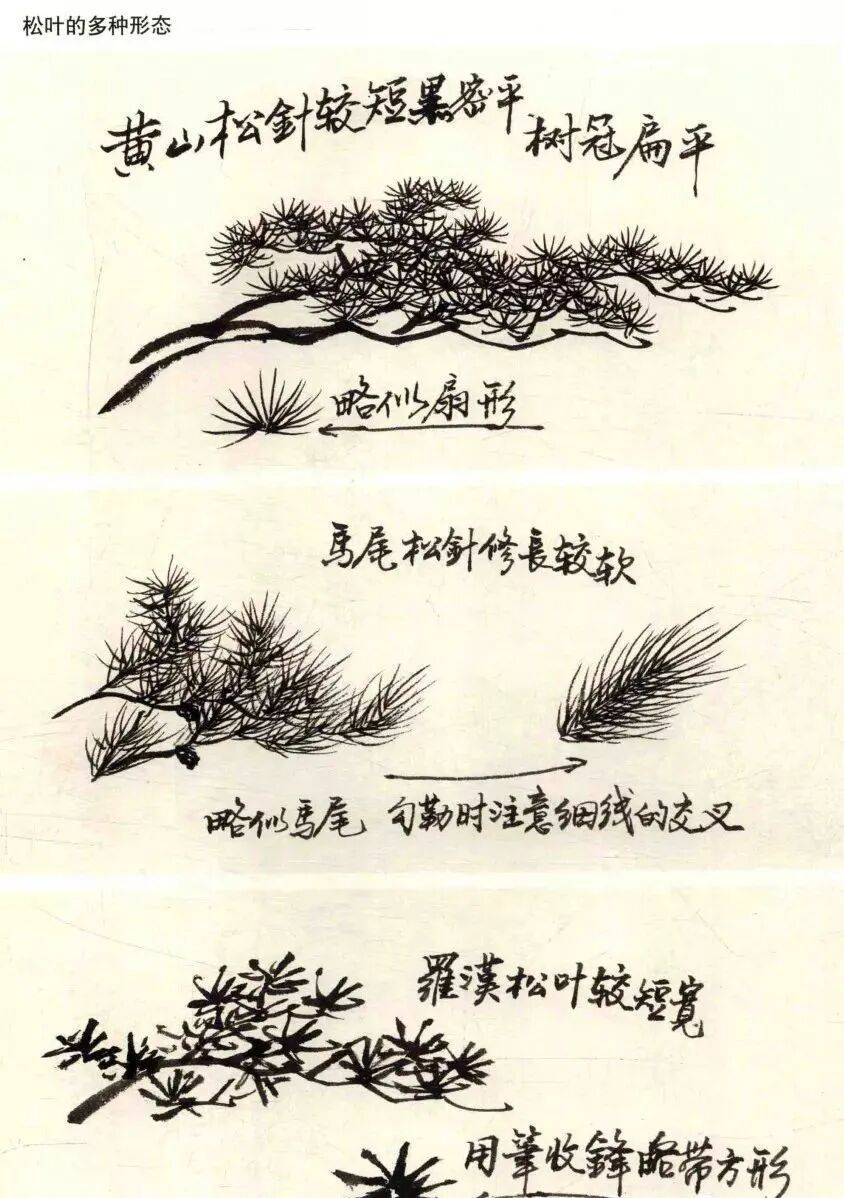 松叶的多种形态
黄山松針较短黑密平
树冠扁平
略似扇形
馬尾松針修長较软
略似馬尾 勾勒时注意细线的交叉
羅漢松叶较短寬
用筆收鋒略带方形